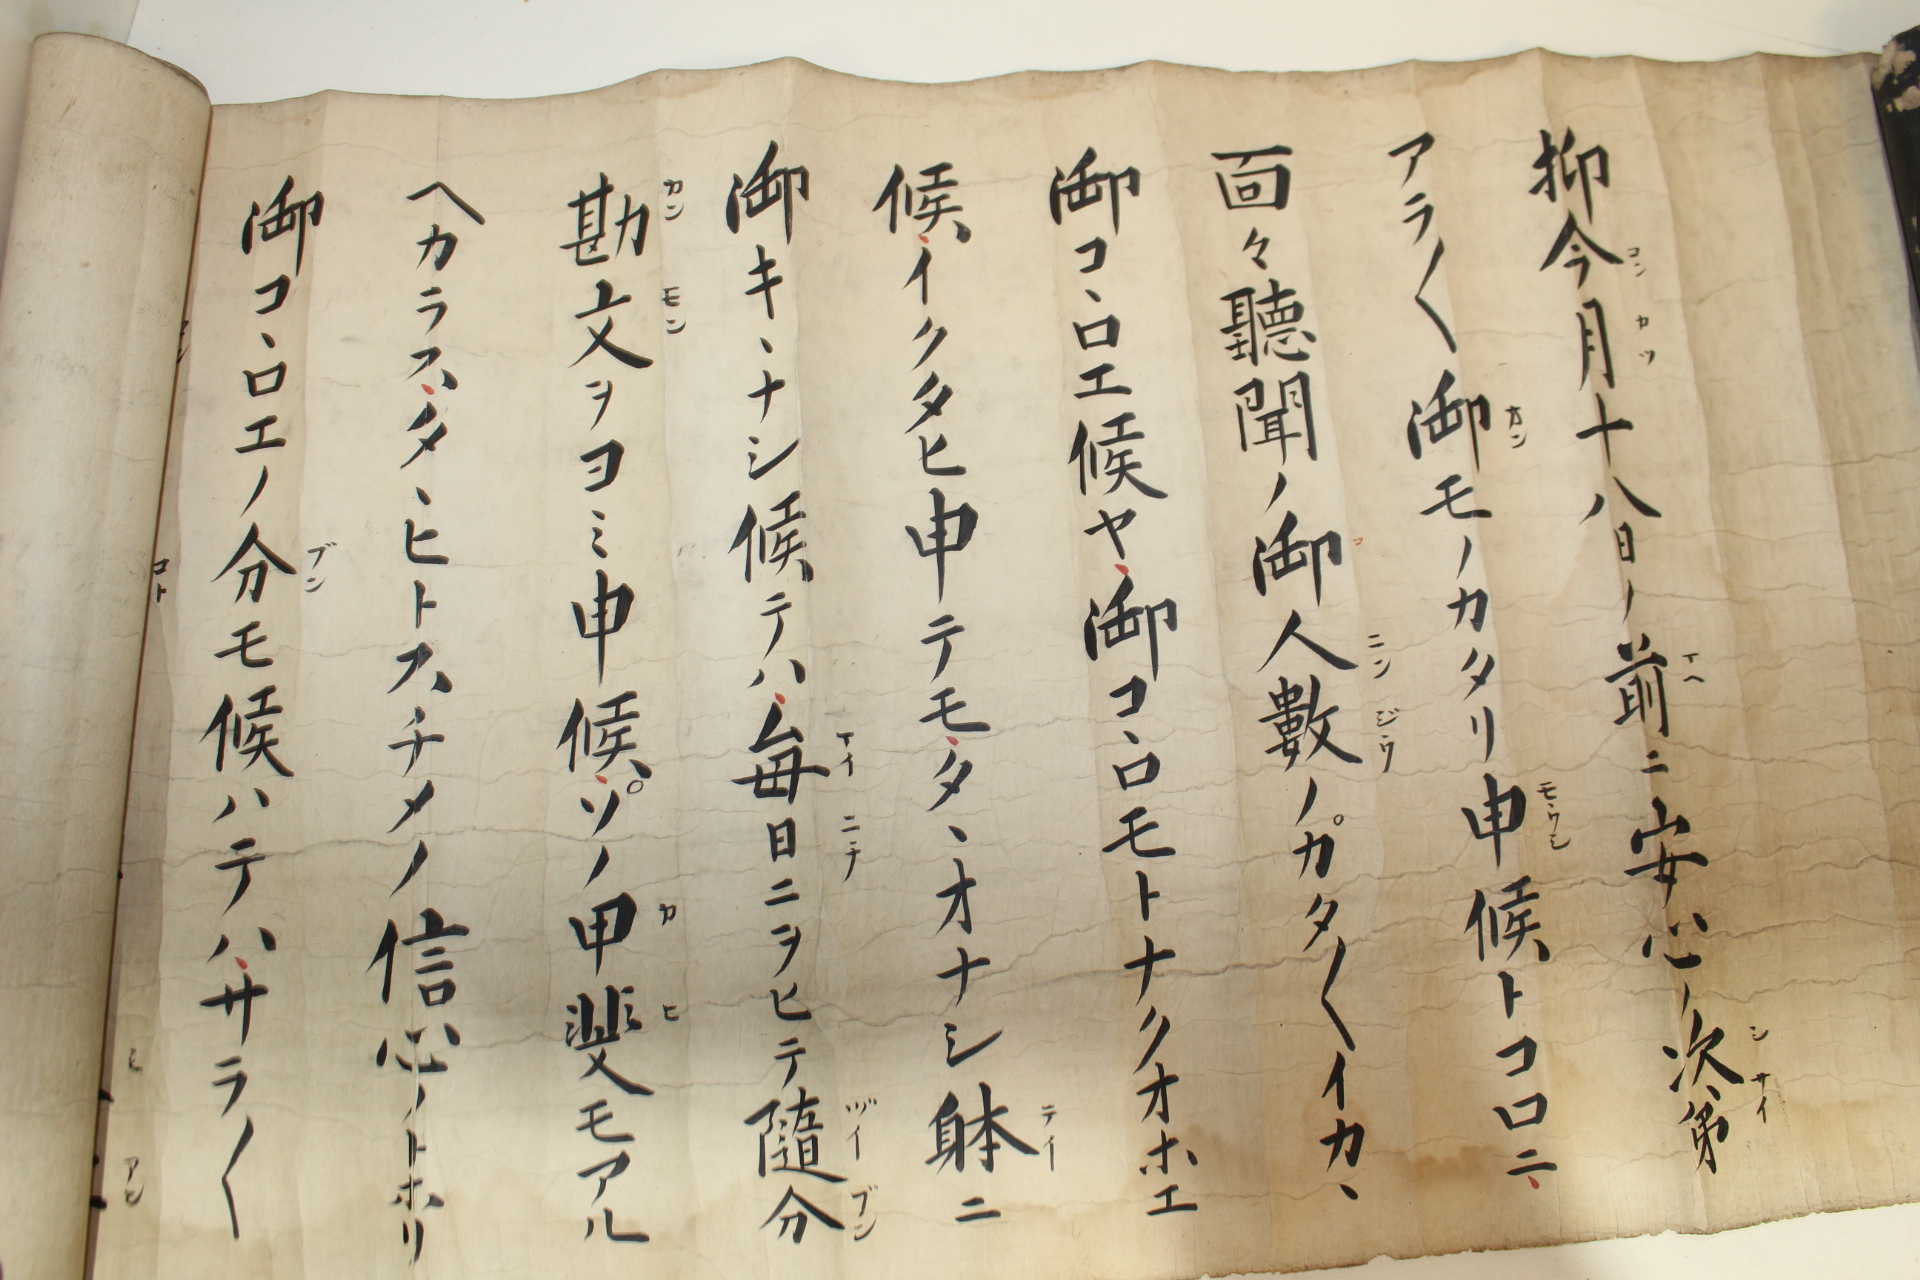 抑今月十八日ノ前ニ安心ノ次第
アラ〱御モノカタリ申候トコロニ
面々聽聞ノ御人數ノカタ〱イカヽ
御コヽロエ候ヤ御コヽロモトナクオホエ
候イクタヒ申テモタヽオナシ躰ニ
御キヽナシ候テハ毎日ニヲヒテ隨分
勘文ヲヨミ申候ソノ甲斐モアル
ヘカラスタヽヒトスチメノ信心ノトホリ
御コヽロエノ分モ候ハテハサラ〱